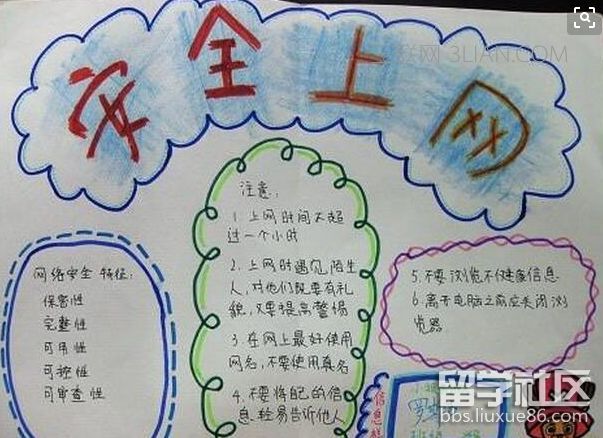 安全上网
联网 3LIAN.COM
网络安全 特征:
保密性
完整性
可用性
可控性
可审查性
注意:
1. 上网时间不超
过一个小时
2. 上网时遇见陌生
人,对他们既要有礼
貌,又要提高警惕
3. 在网上最好使用
网名,不要使用真名
4. 不要将自己的信
息轻易告诉他人
5. 不要浏览不健康信息
6. 离开电脑之前应关闭浏
览器
信息
留学社区
bbs.liuxue86.com